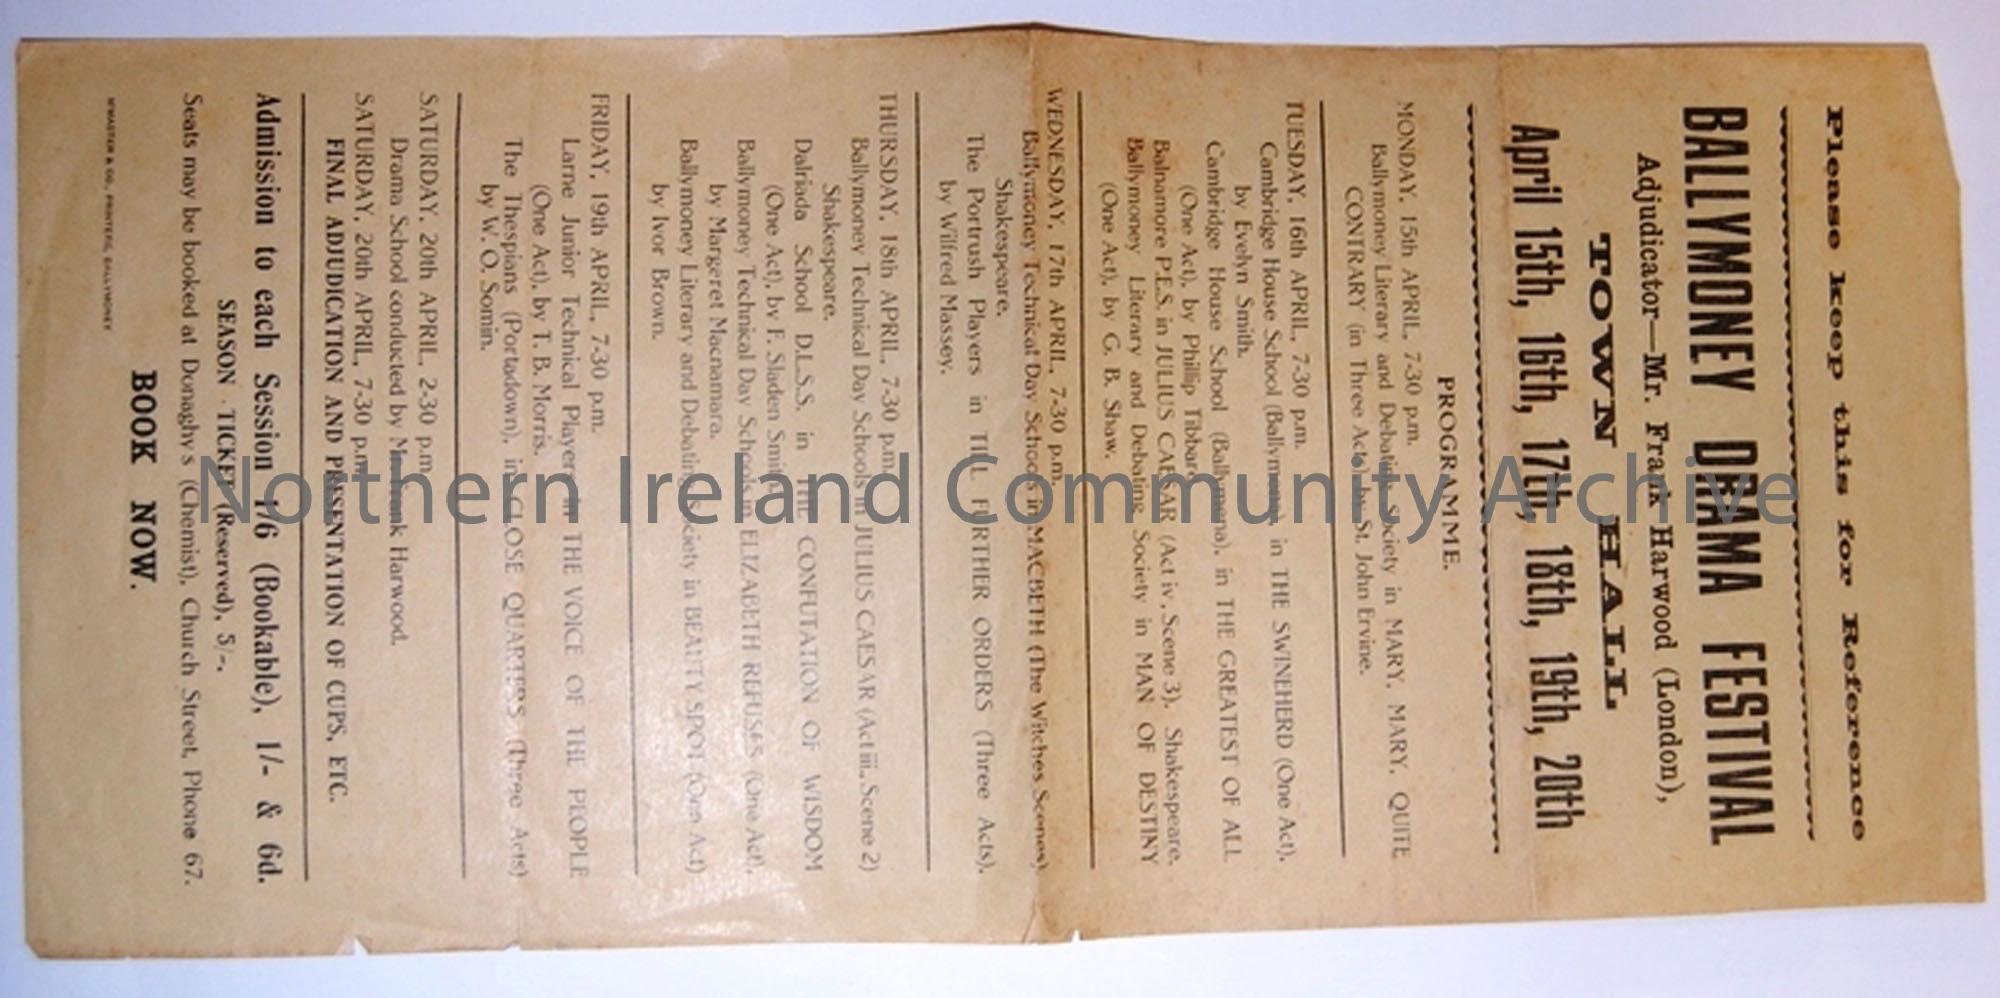 Please keep this for Reference
BALLYMONEY DRAMA FESTIVAL
Adjudicator—Mr. Frank Harwood (London),
TOWN HALL
April 15th, 16th, 17th, 18th, 19th, 20th
PROGRAMME.
MONDAY, 15th APRIL, 7-30 p.m.
Ballymoney Literary and Debating Society in MARY, MARY, QUITE
CONTRARY (in Three Acts) by St. John Ervine.
TUESDAY, 16th APRIL, 7-30 p.m.
Cambridge House School (Ballymena), in THE SWINEHERD (One Act),
by Evelyn Smith.
Cambridge House School (Ballymena), in THE GREATEST OF ALL
(One Act), by Phillip Tibbard
Balnamore P.E.S. in JULIUS CAESAR (Act iv, Scene 3), Shakespeare.
Ballymoney Literary and Debating Society in MAN OF DESTINY
(One Act), by G. B. Shaw.
WEDNESDAY, 17th APRIL, 7-30 p.m.
Ballymoney Technical Day Schools in MACBETH (The Witches Scenes)
Shakespeare.
The Portrush Players in TILL FURTHER ORDERS (Three Acts),
by Wilfred Massey.
THURSDAY, 18th APRIL, 7-30 p.m.
Ballymoney Technical Day Schools in JULIUS CAESAR (Act iii., Scene 2)
Shakespeare.
Dalriada School D.L.S.S. in THE CONFUTATION OF WISDOM
(One Act), by F. Sladen Smith
Ballymoney Technical Day Schools in ELIZABETH REFUSES (One Act),
by Margeret Macnamara.
Ballymoney Literary and Debating Society in BEAUTY SPOT (One Act)
by Ivor Brown.
FRIDAY, 19th APRIL, 7-30 p.m.
Larne Junior Technical Players in THE VOICE OF THE PEOPLE
(One Act), by T. B. Morris.
The Thespians (Portadown), in CLOSE QUARTERS (Three Acts)
by W. O. Somin.
SATURDAY, 20th APRIL, 2-30 p.m.
Drama School conducted by Mr. Frank Harwood.
SATURDAY, 20th APRIL, 7-30 p.m.
FINAL ADJUDICATION AND PRESENTATION OF CUPS, ETC.
Admission to each Session 1/6 (Bookable), 1/- & 6d.
SEASON TICKET (Reserved), 5/-.
Seats may be booked at Donaghy's (Chemist), Church Street, Phone 67.
BOOK NOW.
M'MASTER & CO., PRINTERS, BALLYMONEY
Northern Ireland Community Archive